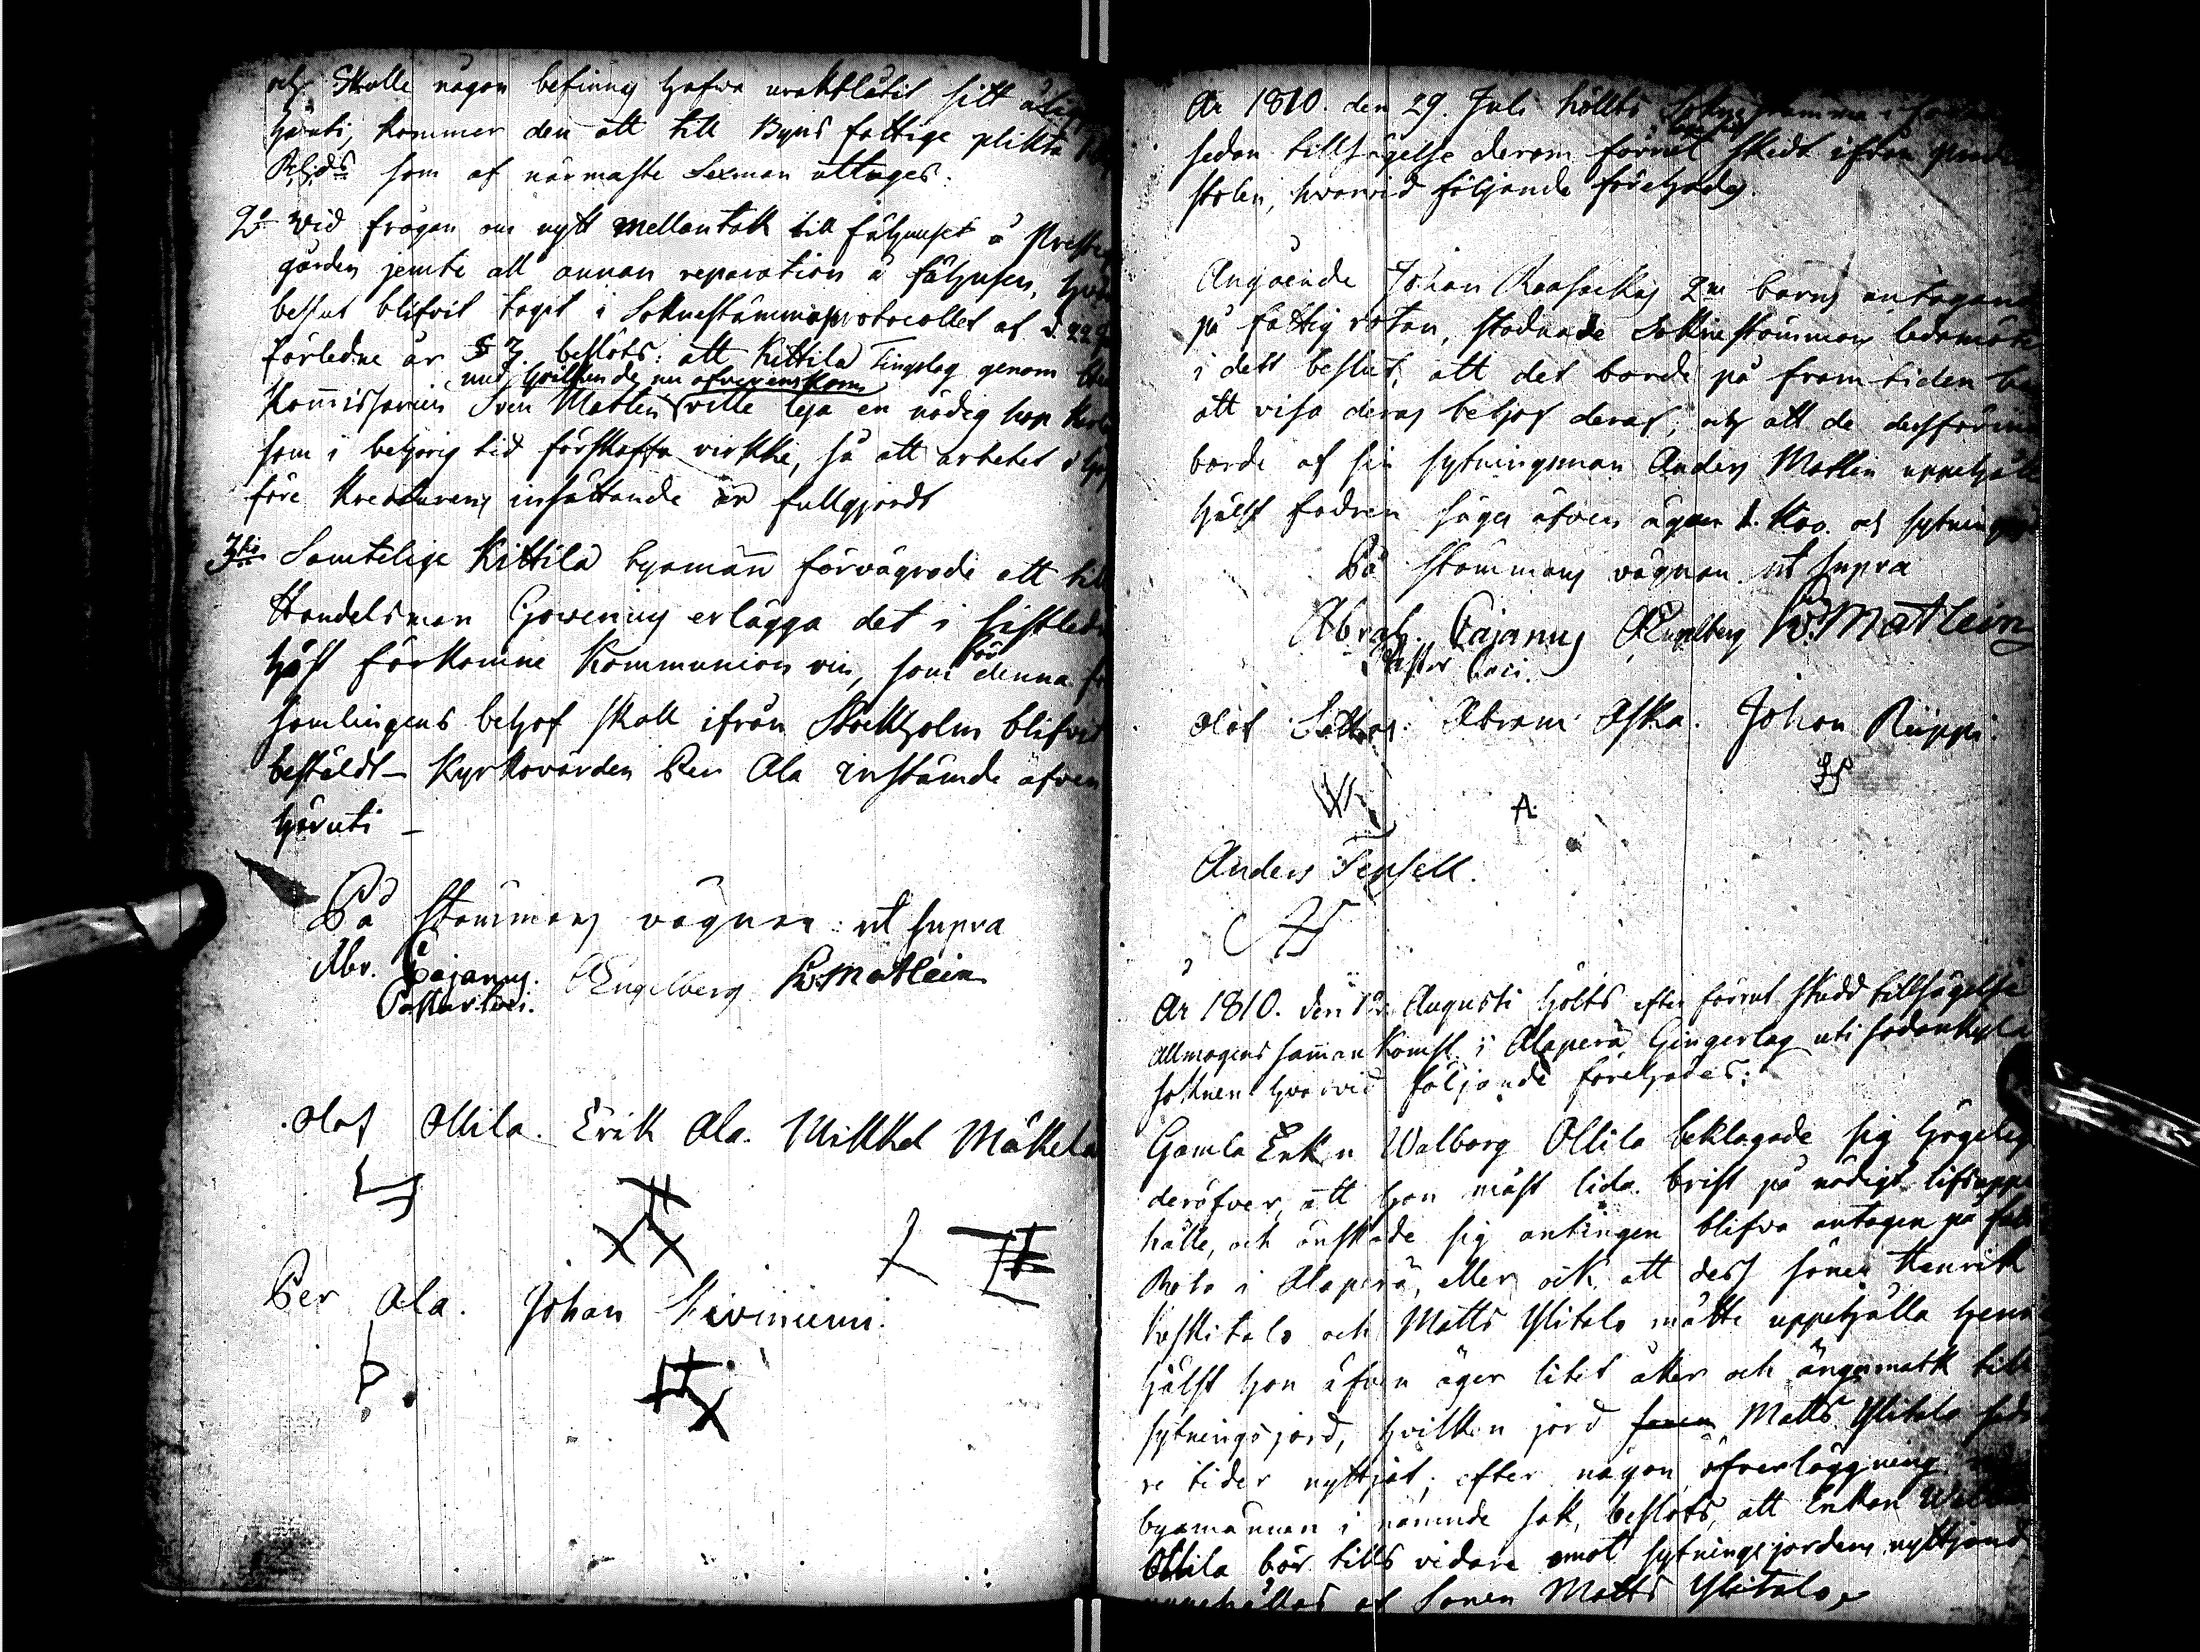 och Skulle någon befinnas hafva uraktlåtit sitt
häruti, kommer den att till Byns fattige plikta
Rd:s som af närmaste Sexman uttages.
2o Wid frågan om nytt mellantak till fähuset å Preste
gården jemte all annan reparation å fähusen,
beslut blifvit taget i Soknestämmoprotocollet af d. 22
förledne år § 7. beslöts: att Kittilä Tingslag genom
med hvilken de nu öfverenskom
Kommissarien Sven Matlein ville leja en nödig hop
som i behörig tid förskaffa virkke, så att arbetet
före Kreaturens insättande är fullgjordt
3tio Samtelige Kittilä byamän förvägrade att till
Handelsman Govenius erlägga det i sistledne
höst förkomne Kommunion vin, som för denna för
samlingens behof skall ifrån Stockholm blifvit
bestäldt – Kyrkovärden Per Ala instämde äfven
häruti –
På stämmans vägnar ut supra
Abr. Cajanus. AEngelberg Sv. Matlein
Pastor Loci.
Olof Ollila. Erik Ala. Mikkel Mäkelä
Per Ala. Johan Kiviniemi.
År 1810. den 29. Juli höllts
sedan tillsägelse derom förrut skedt ifrån predik
stolen, hvarvid följande förehades.
Angående Johan Raasackas 2ne barns antagande
på fattig rotan, stadnade Soknestämmans ledamöter
i dett beslut, att det borde på framtiden
att visa deras behof deraf, och att de dessförinnan
borde af sin sytningsman Anders Matlin uppehållas
hälst fadren säges äfven ägen 1. Koo. och sytnings
På stämmans vägnar ut supra
Abrah. Cajanus AEngelberg Sv. Matlein
Pastor Loci.
Olof Abram Aska. Johan Riippi.
A
Anders Tepsell.
År 1810. den 12. Augusti hölts efter förrut skedd tillsägelse
allmogens sammankomst i Alaperä Gingerlag uti Sodankylä
soknen hvarvid följande förehades:
Gamla Enkan Walborg Ollila beklagade sig högeligen
deröfver, att hon måst lida brist på nödigt lifsuppe
hälle, och önskade sig antingen blifva antagen på fattig
Rota i Alaperä, eller ock att dess söner Henrik
Koskitalo och Matts Ylitalo måtte uppehälla henne
hälst hon äfven äger litet åker och ängsmark till
sytningsjord, hvilken jord Matts Ylitalo
re tider nyttjat; efter någon öfverläggning
byamännen i nämnde sak, beslöts, att Enkan Walborg
Ollila bör tills vidare emot sytningsjordens nyttjande
uppehållas af Sonen Matts Ylitalo,